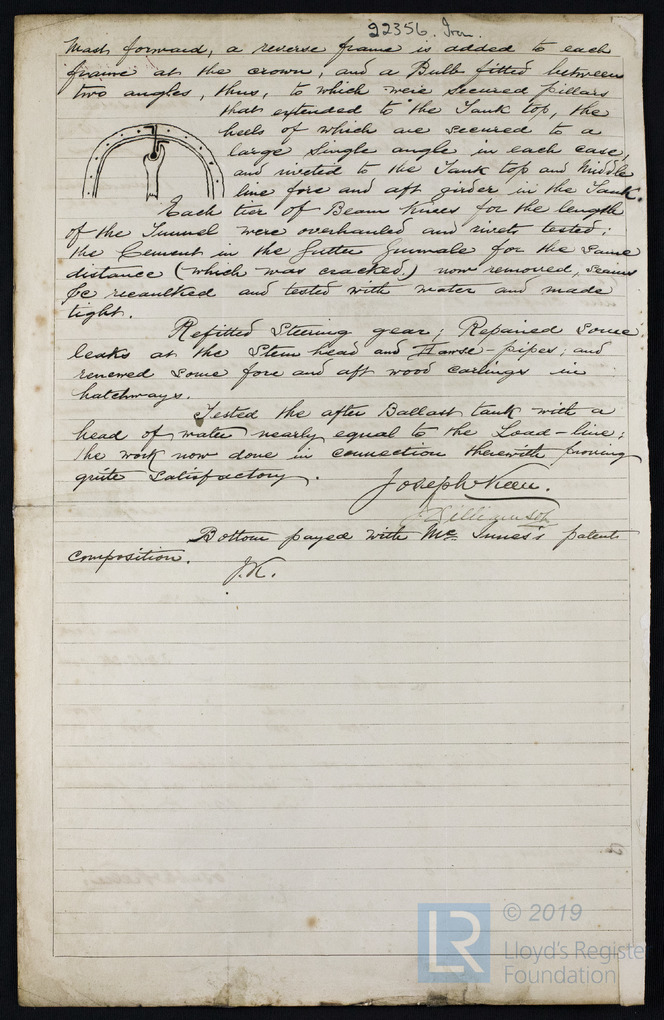 22356. Iron.
Mast forward, a reverse frame is added to each
frame at the crown, and a Bulb fitted between
two angles, thus, to which were secured pillars
that extended to the Tank top, the
heels of which are secured to a
large single angle in each case,
and riveted to the Tank top and middle
line fore and aft girder in the Tank.
Each tier of Beam Knees for the length
of the Tunnel were overhauled and rivets tested;
the Cement in the gutter Gunwale for the same
distance (which was cracked) now removed, seams
&c recaulked and tested with water and made
tight.
Refitted Steering gear; Repaired some
leaks at the Stem head and Hawse-pipes; and
renewed some fore and aft wood carlings in
hatchways.
Tested the after Ballast tank with a
head of water nearly equal to the Load-line;
the work now done in connection therewith proving
quite satisfactory.
Joseph Keen.
Williamson
Bottom payed with Mc Innes's patent
composition.
J.K.
LR
© 2019
Lloyd's Register
Foundation